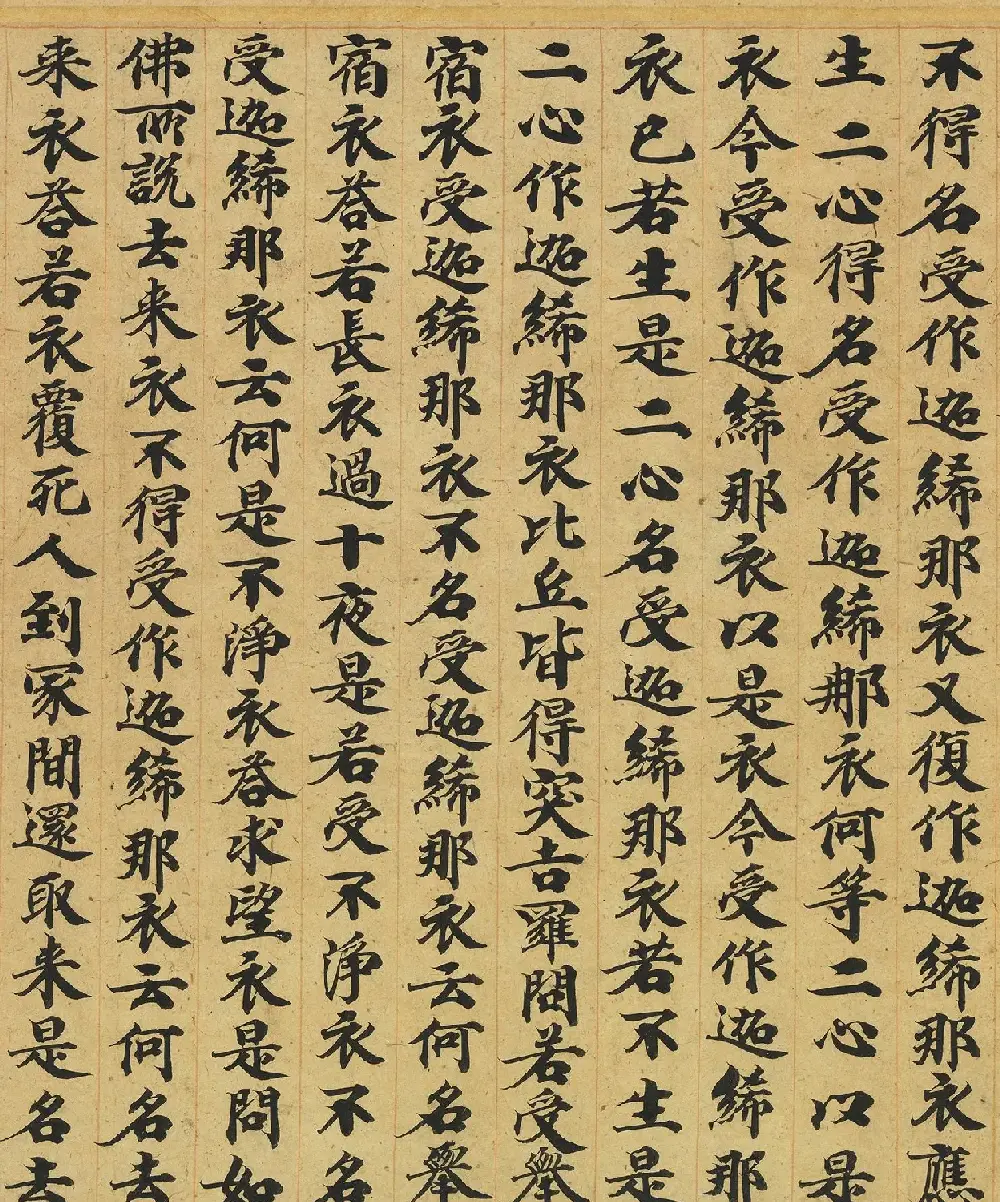 不得名受作迦絺那衣又復作迦絺那衣應
生二心得名受作迦絺那衣何等二心以是
衣今受作迦絺那衣以是衣今受作迦絺那
衣已若生是二心名受迦絺那衣若不生是
二心作迦絺那衣比丘皆得突吉羅問若受舉
宿衣受迦絺那衣不名受迦絺那衣云何名舉
宿衣荅若長衣過十夜是若受不淨衣不名
受迦絺那衣云何是不淨衣荅求望衣是問如
佛所說去来衣不得受作迦絺那衣云何名去
来衣荅若衣覆死人到冢間還取来是名去